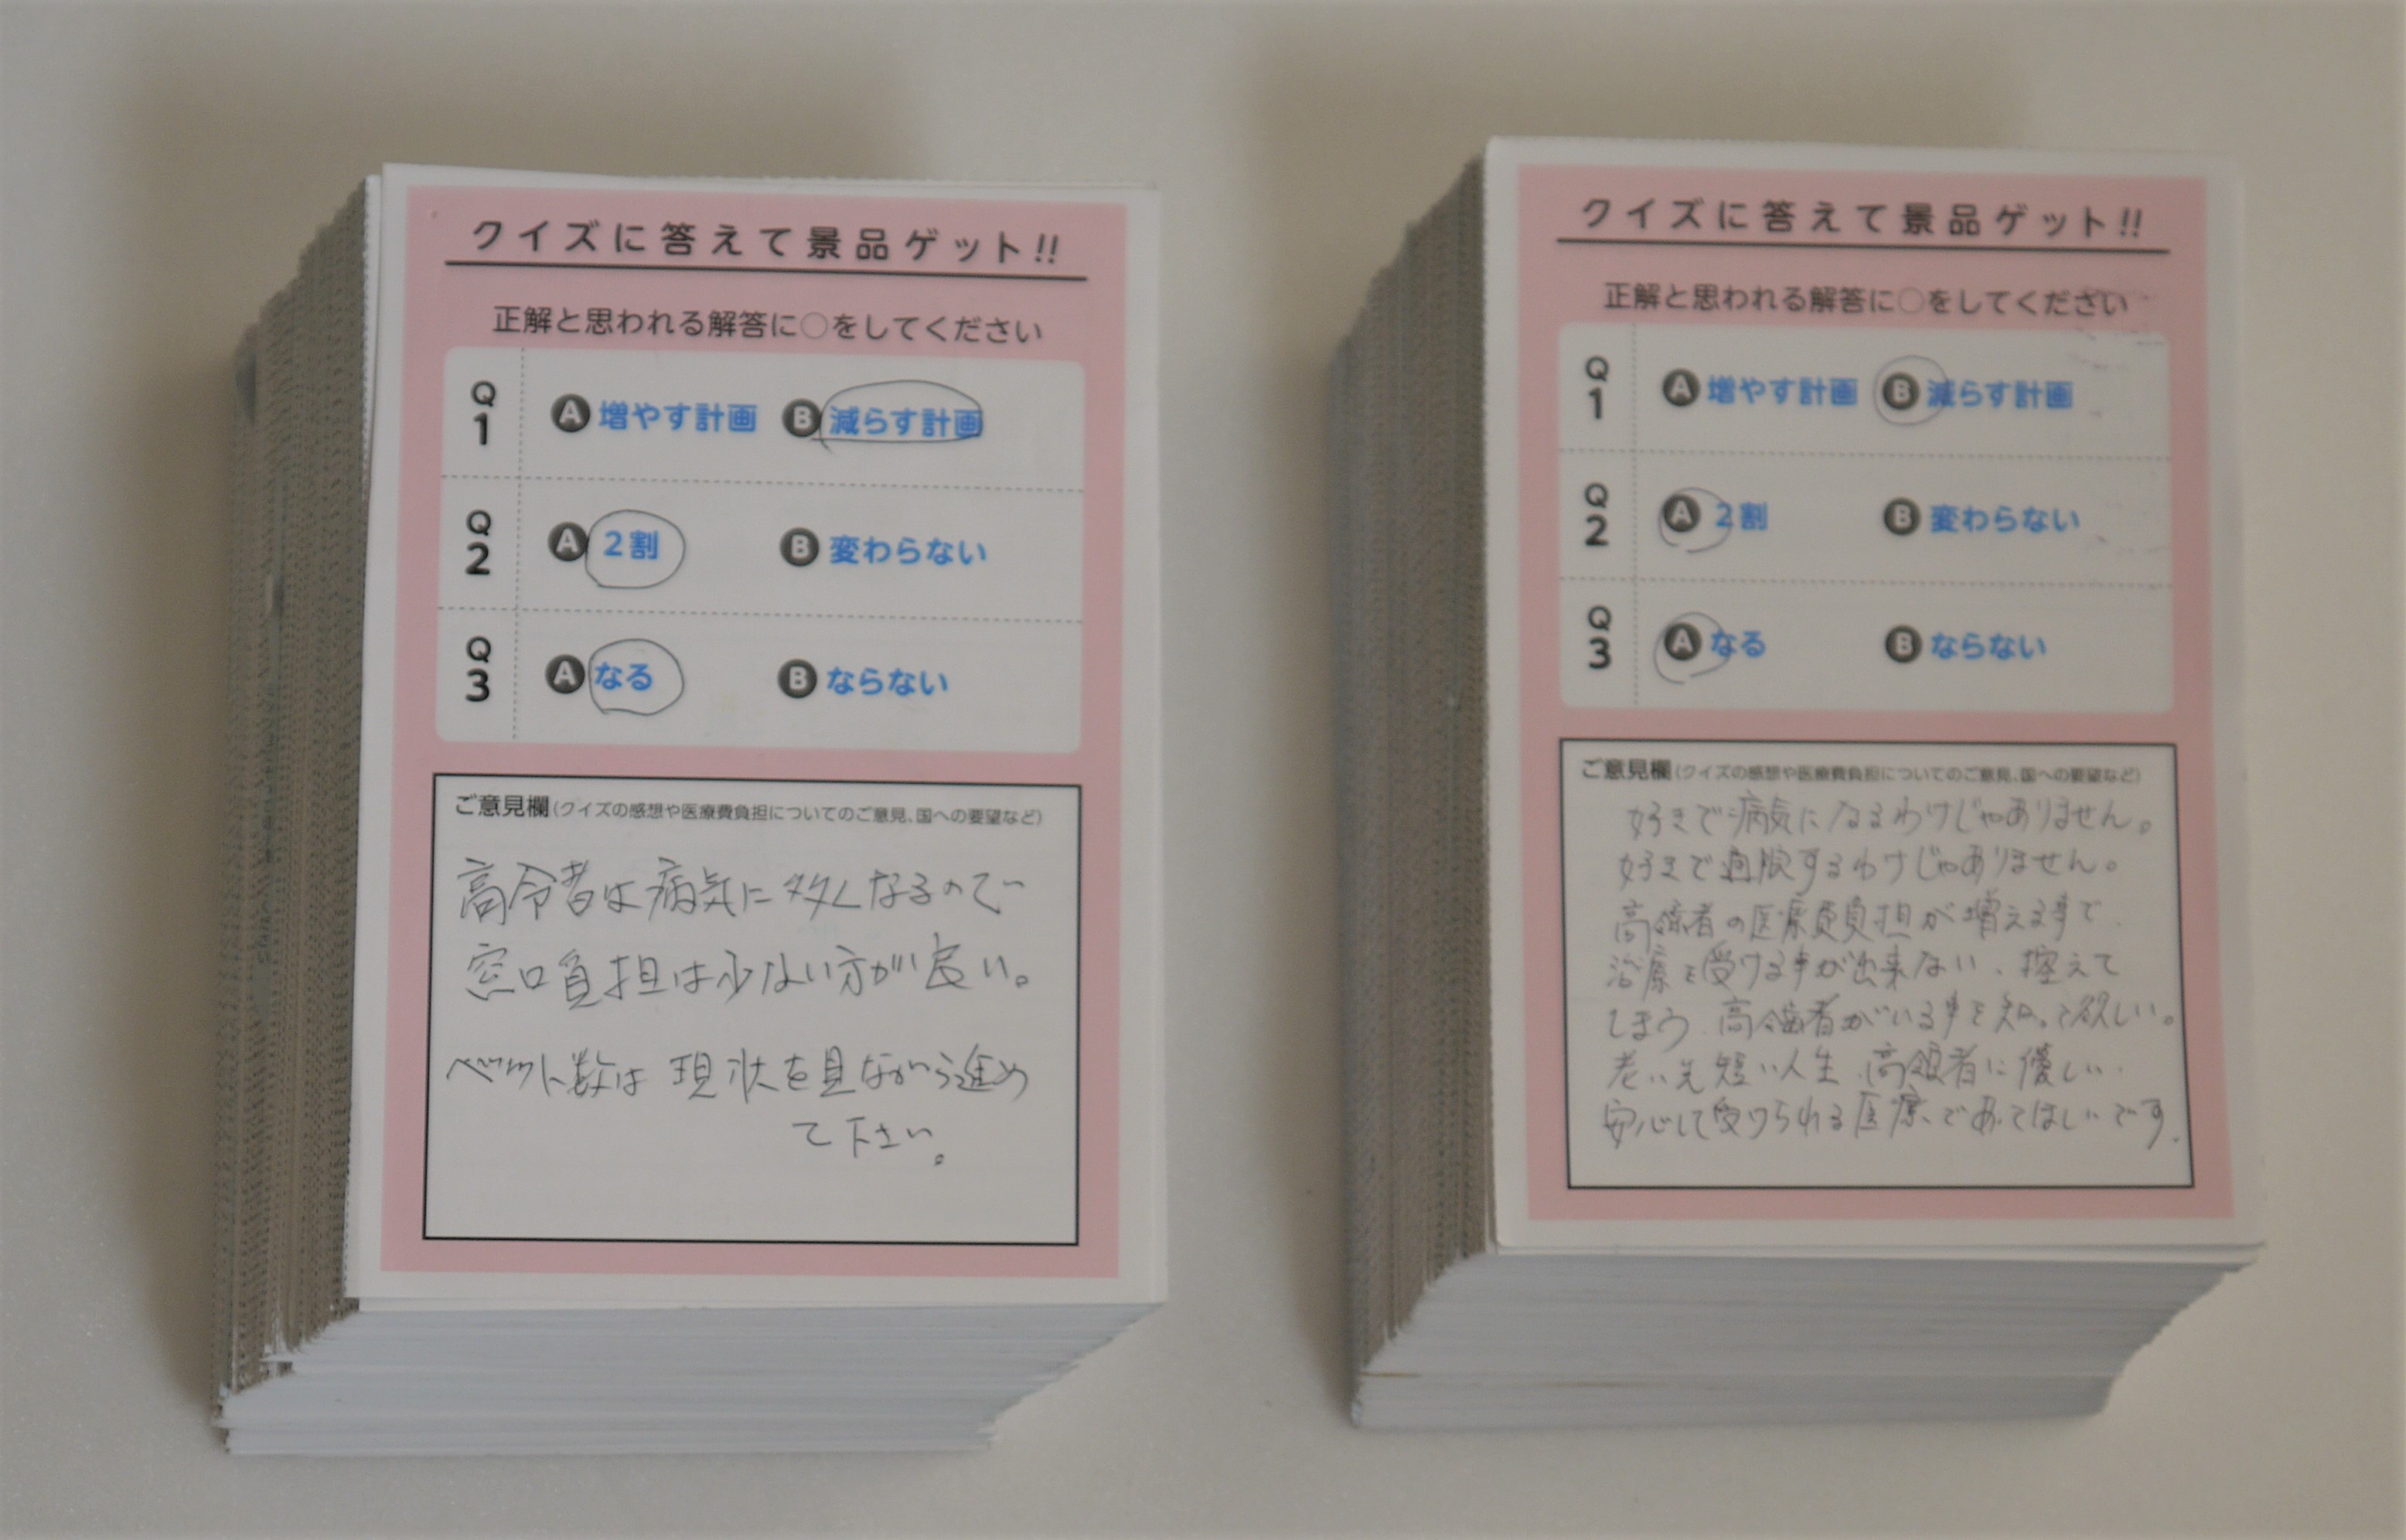 クイズに答えて景品ゲット!!
正解と思われる解答に○をしてください
Q1 A 増やす計画 B 減らす計画
Q2 A 2割 B 変わらない
Q3 A なる B ならない
ご意見欄(クイズの感想や医療費負担についてのご意見、国への要望など)
高令者は病気に多くなるので
窓口負担は少ない方が良い。
ベット数は現状を見ながら進め
て下さい。
クイズに答えて景品ゲット!!
正解と思われる解答に○をしてください
Q1 A 増やす計画 B 減らす計画
Q2 A 2割 B 変わらない
Q3 A なる B ならない
ご意見欄(クイズの感想や医療費負担についてのご意見、国への要望など)
好きで病気になるわけじゃありません。
好きで通院するわけじゃありません。
高齢者の医療費負担が増える事で、
治療を受ける事が出来ない、控えて
しまう、高齢者がいる事を知って欲しい。
老い先短い人生、高齢者に優しい、
安心して受けられる医療であってほしいです。